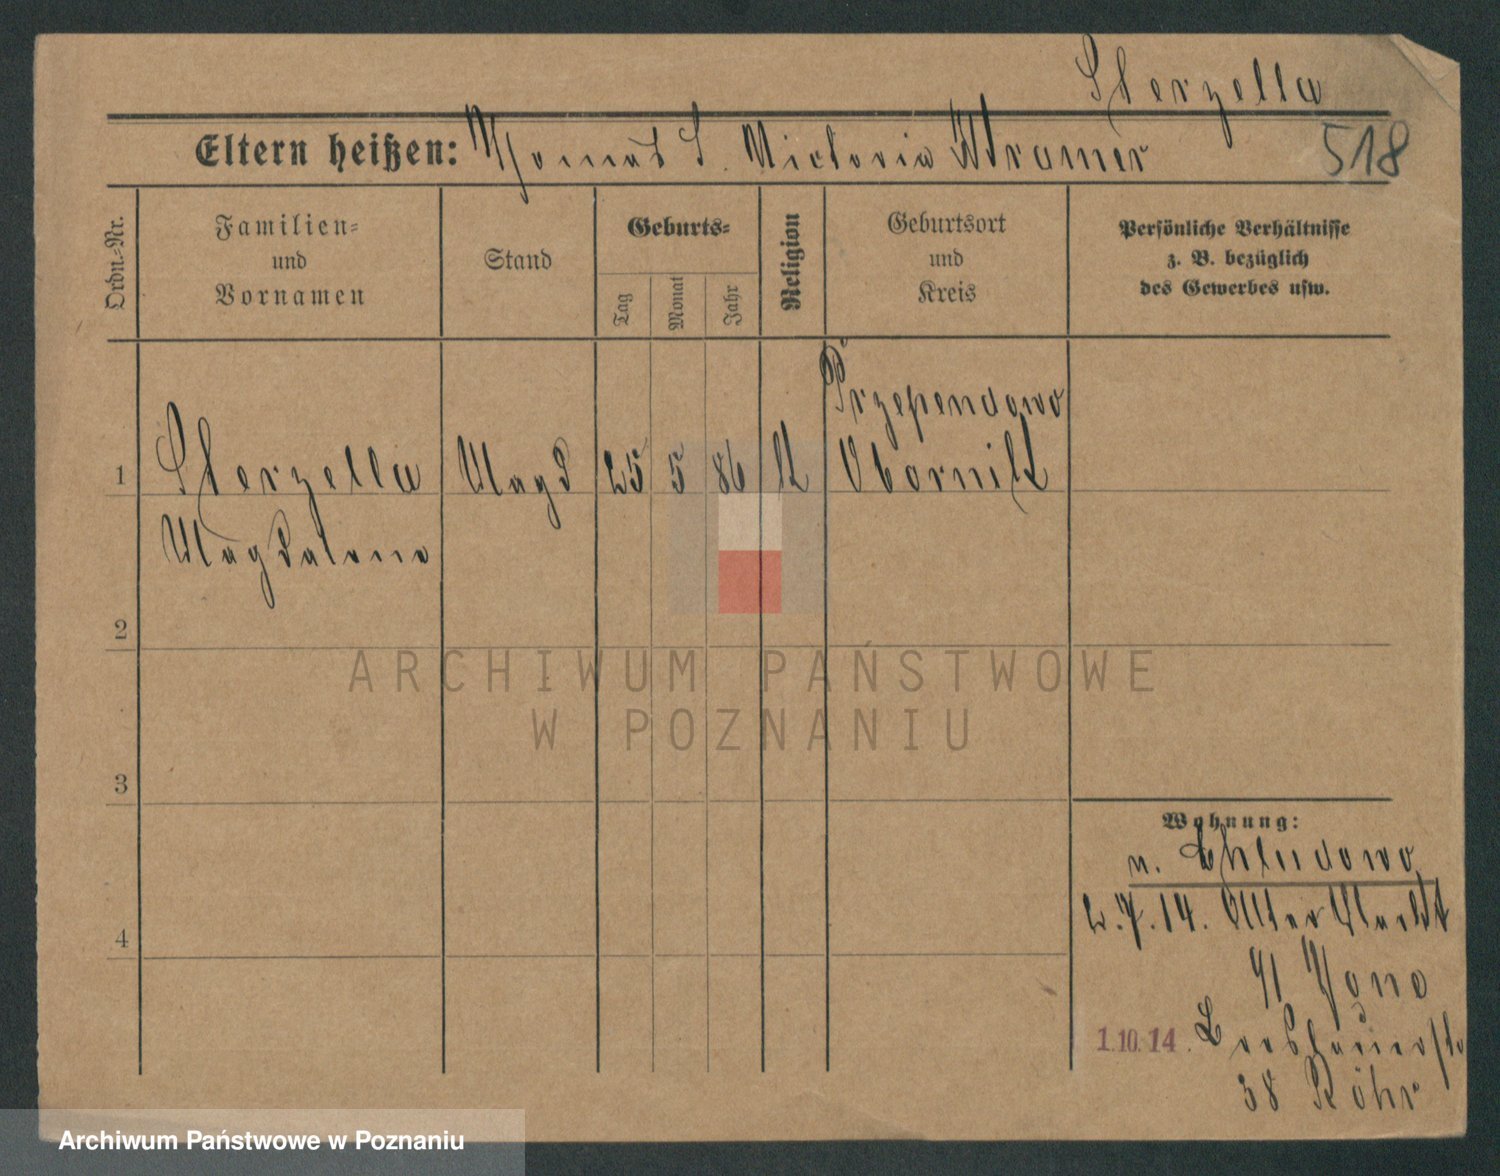 Sterzella
Eltern heißen: Thomas S. Victoria Kramer
518
Ordn.-Nr.
Familien-
und
Vornamen
Stand
Geburts-
Tag
Monat
Jahr
Religion
Geburtsort
und
Kreis
Persönliche Verhältnisse
z. B. bezüglich
des Gewerbes usw.
1
Sterzella
Magdalena
Magd
25
5
86
k
Przependowo
Obornik
2
3
4
Wohnung:
v. Chludowo
2.7.14. Alter Markt
1.10.14.
38 Röhr
ARCHIWUM PAŃSTWOWE
W POZNANIU
Archiwum Państwowe w Poznaniu